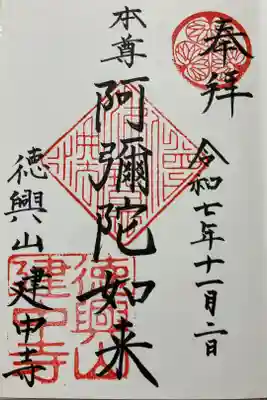 奉拝
令和七年十一月二日
本尊
阿彌陀如来
徳興山
建中寺
徳興山
建中寺